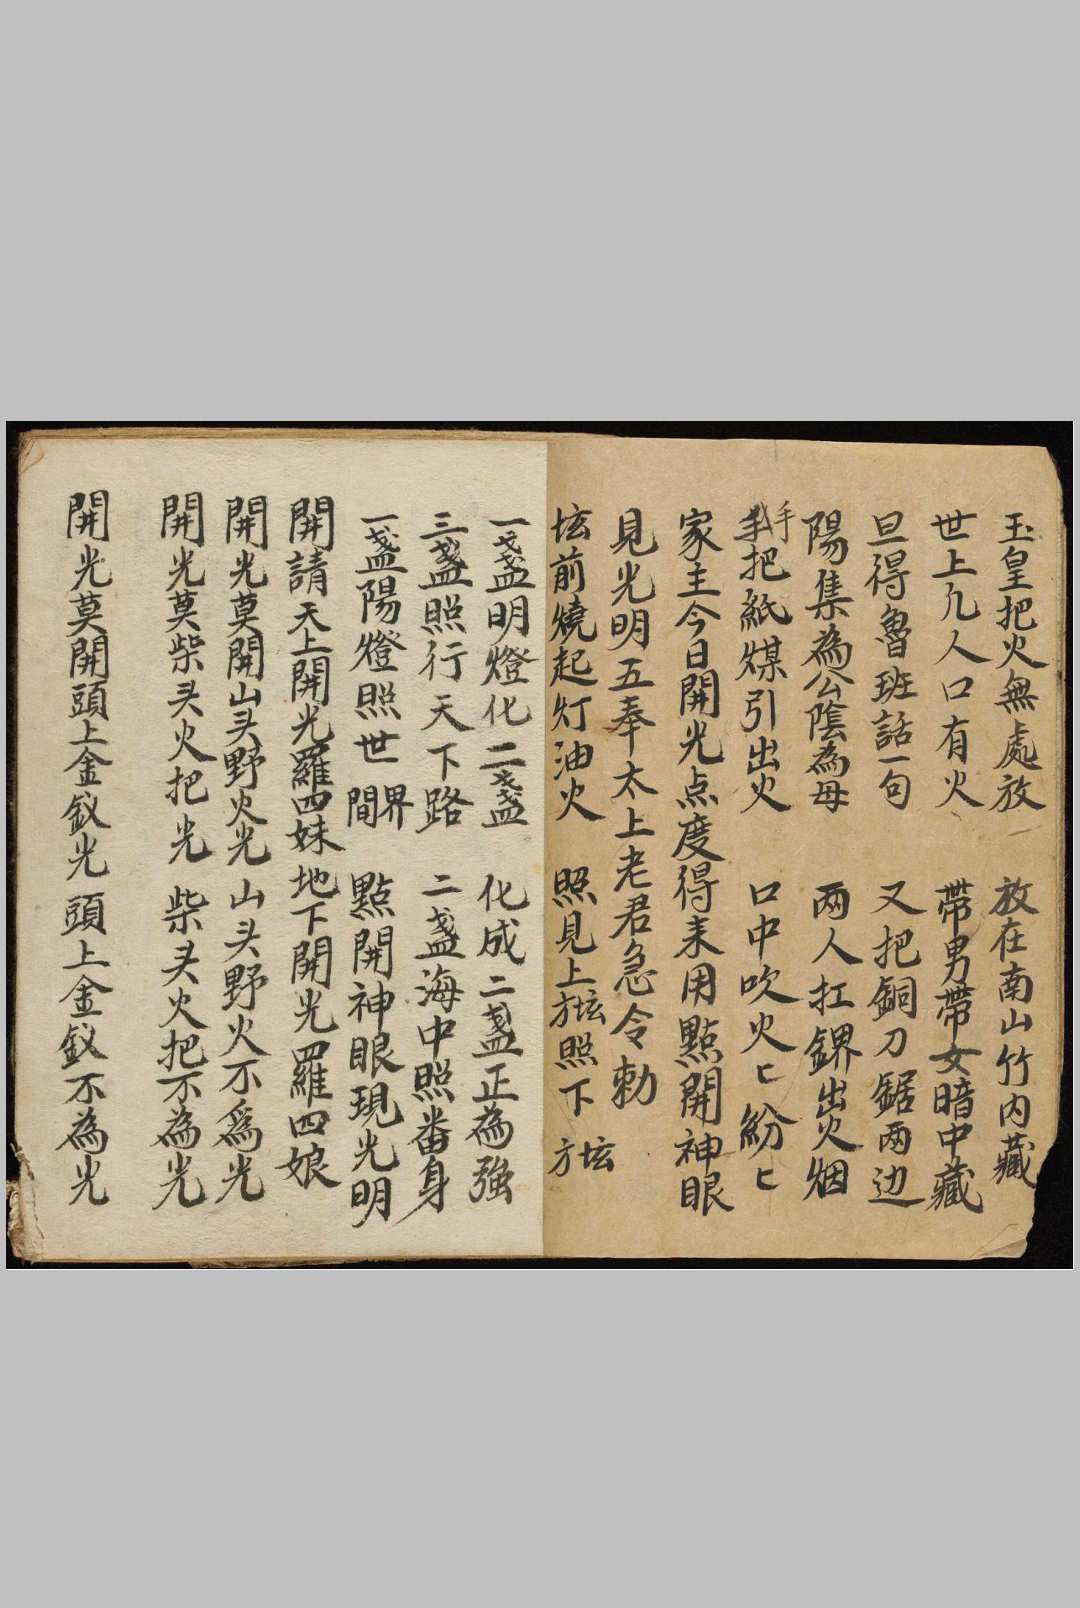 玉皇把火無處放 放在南山竹内藏
世上凡人口有火 帶男帶女暗中藏
旦得魯班話一句 又把銅刀鋸两边
陽隼為公陰為母 两人扛鎅出火烟
手把紙煤引出火 口中吹火匕紛匕
家主今日開光点度得来用點開神眼
見光明五奉太上老君急令勅
坛前燒起灯油火 照見上方坛照下方坛
一盏明燈化二盏 化成二盏正為強
三盏照行天下路 二盏海中照番身
一盏陽燈照世間界 點開神眼現光明
開請天上開光羅四妹地下開光羅四娘
開光莫開山头野火光 山头野火不爲光
開光莫柴头火把光 柴头火把不為光
開光莫開頭上金釵光 頭上金釵不為光